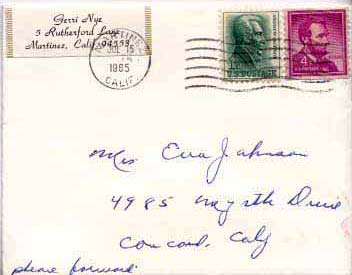 Gerri Nye
5 Rutherford Lane
Martinez, Calif. 94553
MARTINEZ
JUL 15
1965
CALIF.
1c U.S. POSTAGE
4c U.S. POSTAGE
Mrs Eva Johnson
4985 Myrtle Drive
Concord, Calif
please forward